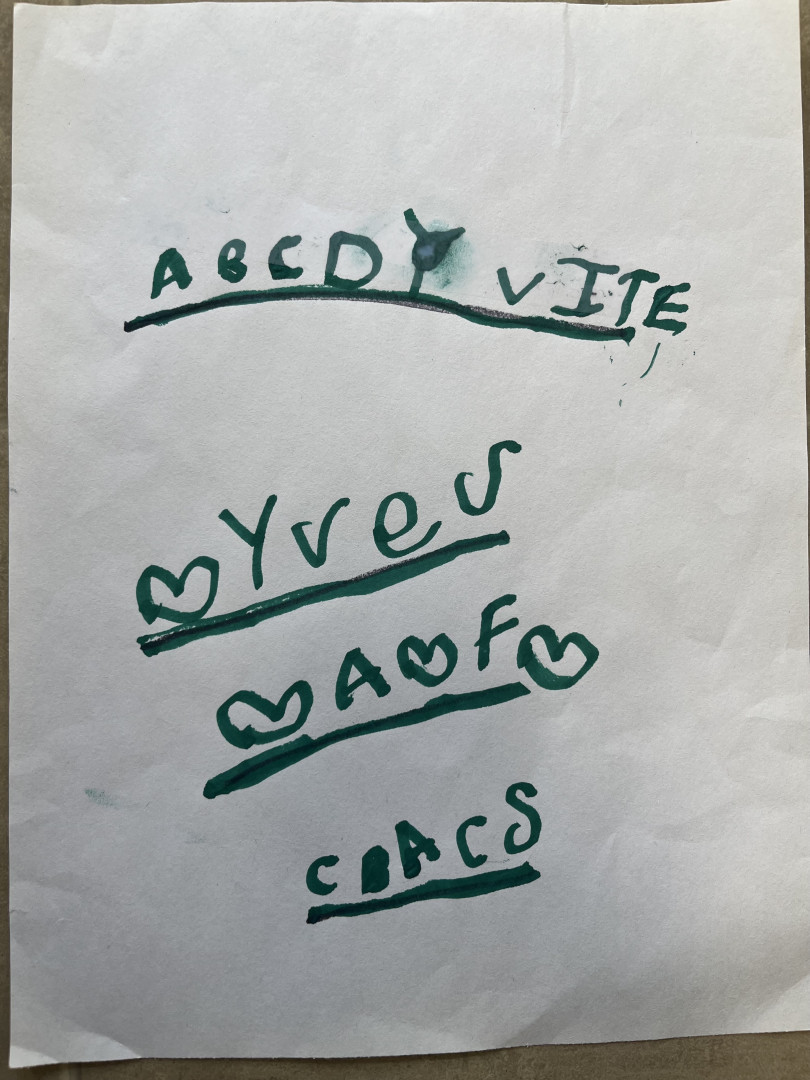 ABCDY VITE
♡Yves
♡A♡F♡
CBACS